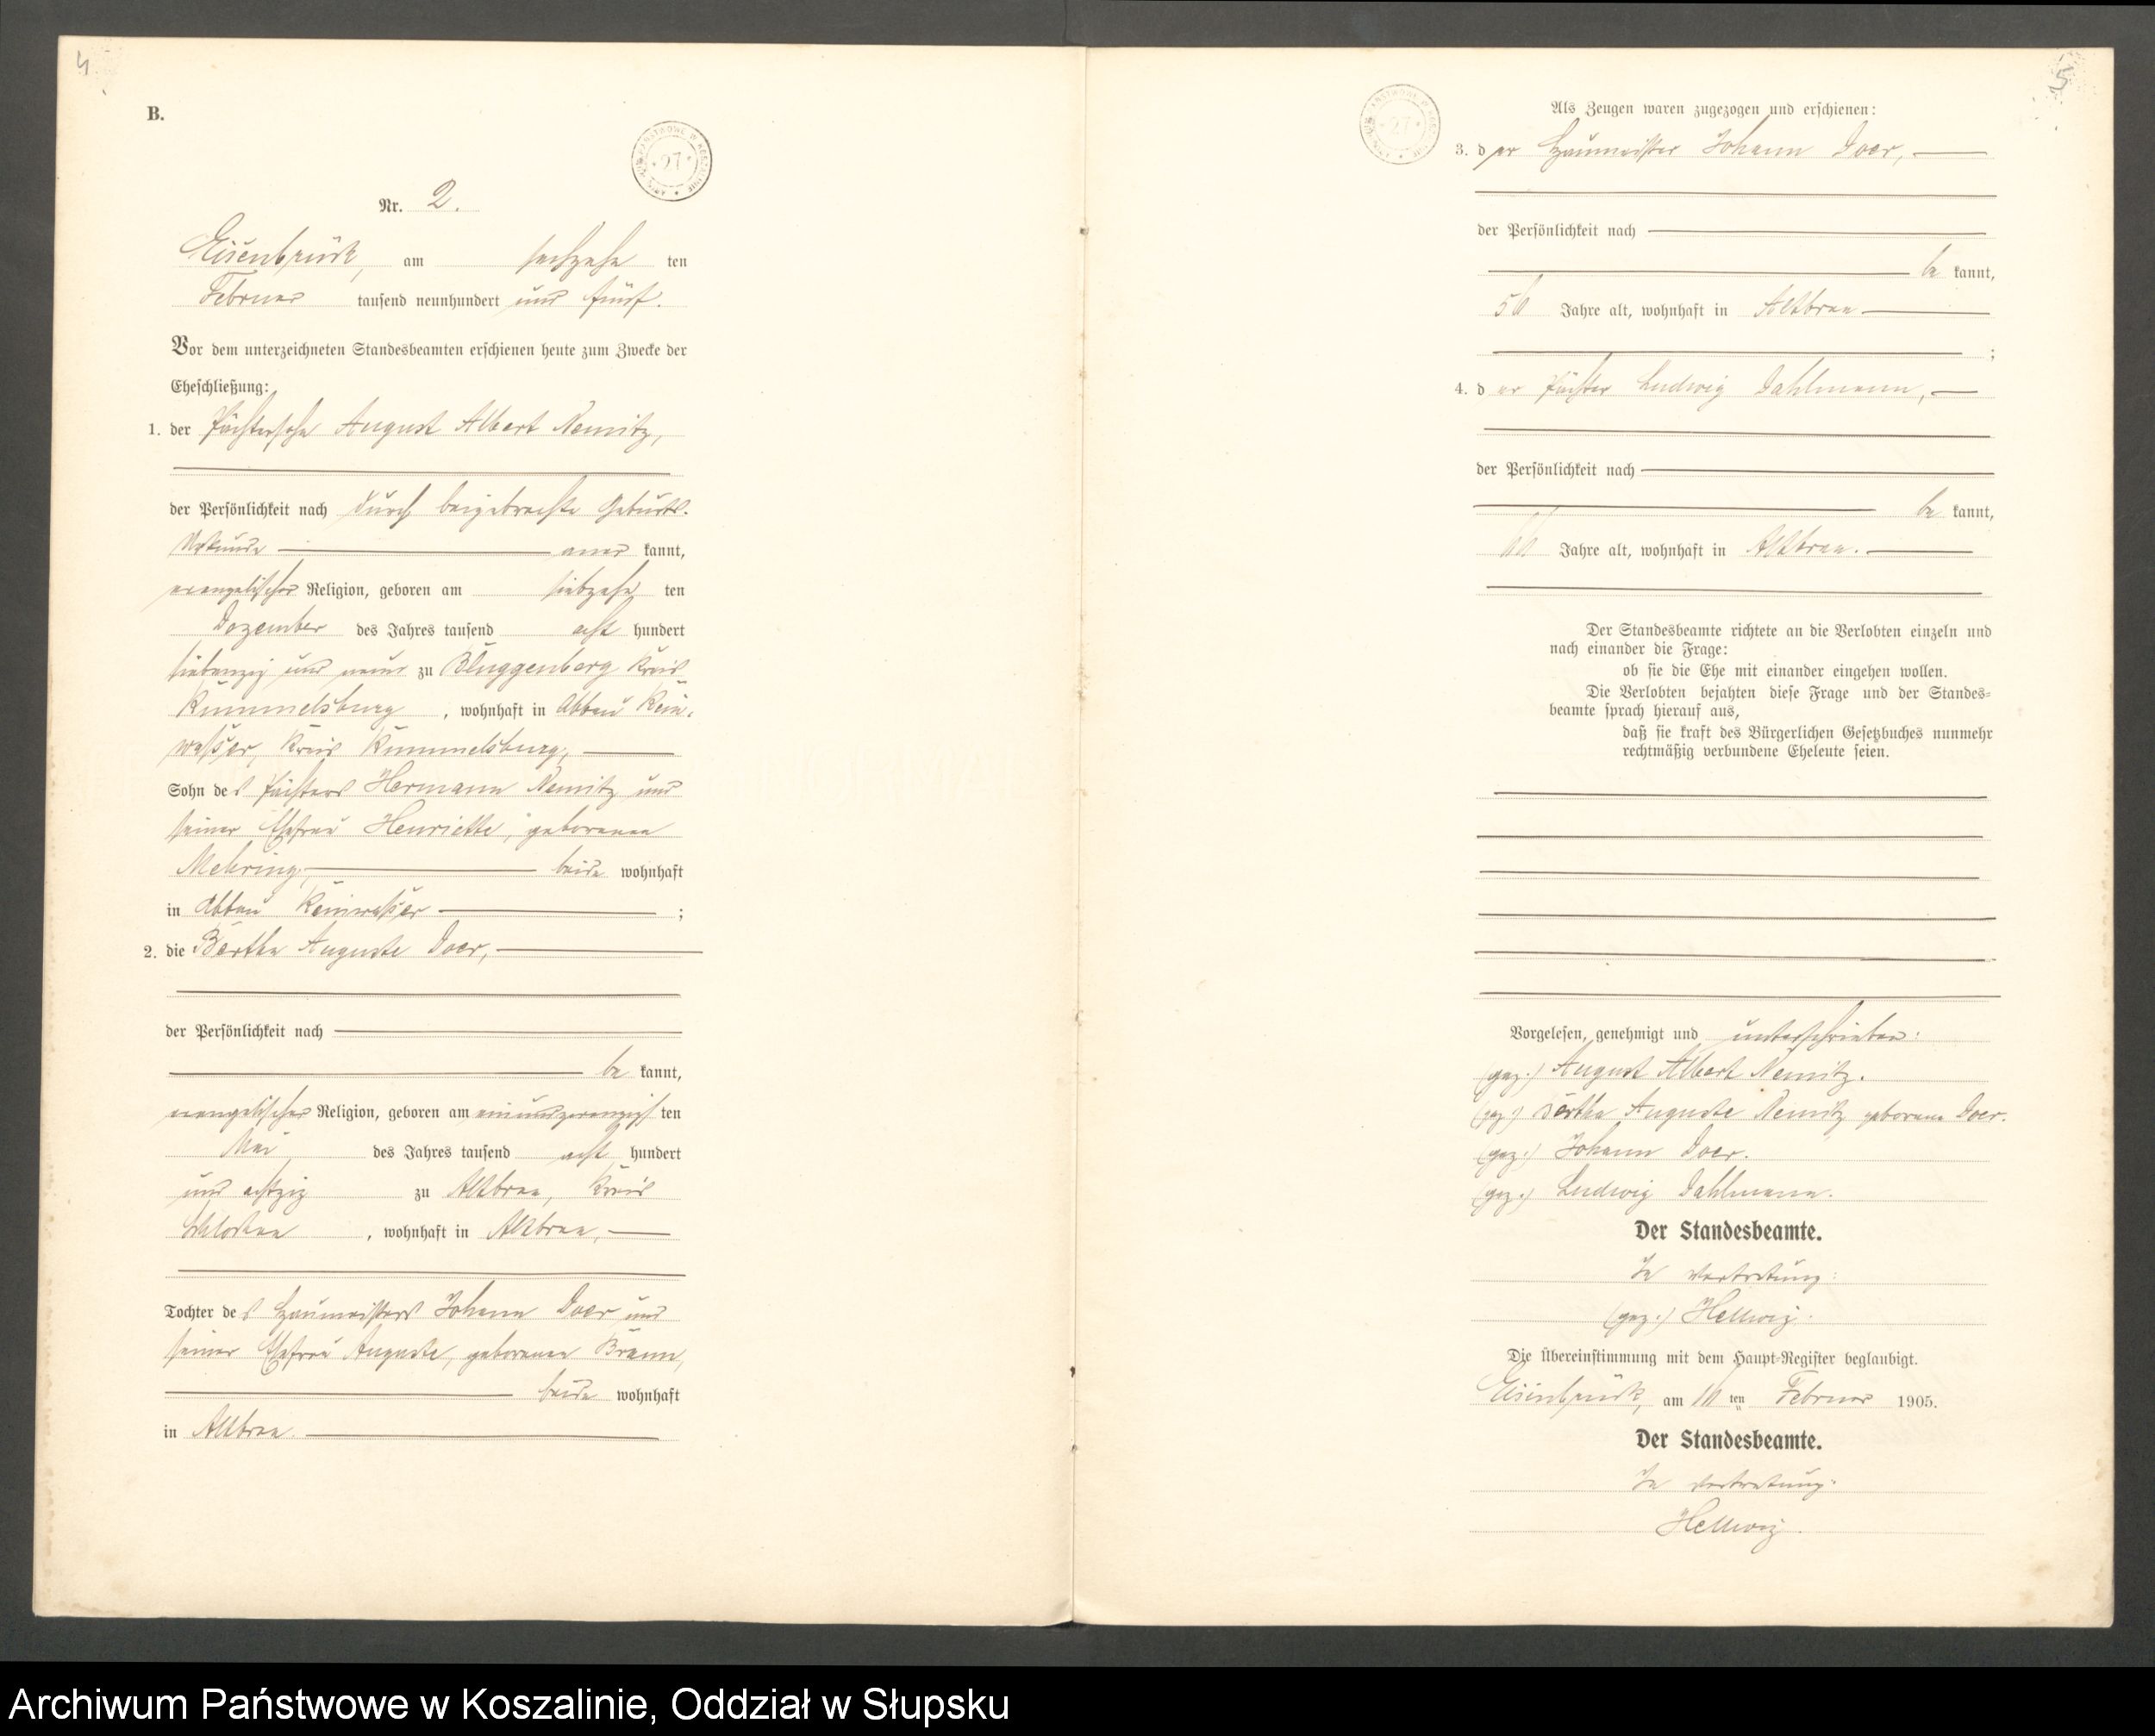 4
B.
Nr. 2.
Eisenbrück, am sechzehn ten
Februar tausend neunhundert und fünf.
Vor dem unterzeichneten Standesbeamten erschienen heute zum Zwecke der
Eheschließung:
1. der Pächtersohn August Albert Nemitz,
der Persönlichkeit nach durch beigebrachte Geburts-
Urkunde aner kannt,
evangelischer Religion, geboren am siebzehn ten
Dezember des Jahres tausend acht hundert
siebenzig und neun zu Bluggenberg Kreis
Rummelsburg, wohnhaft in Abbau Rein-
wasser, Kreis Rummelsburg,
Sohn des Pächters Hermann Nemitz und
seiner Ehefrau Henriette, geborenen
Mehring, beide wohnhaft
in Abbau Reinwasser;
2. die Bertha Auguste Doer,
der Persönlichkeit nach
be kannt,
evangelischer Religion, geboren am einundzwanzigs ten
Mai des Jahres tausend acht hundert
und achtzig zu Altbraa, Kreis
Schlochau, wohnhaft in Altbraa,
Tochter des Haumeisters Johann Doer und
seiner Ehefrau Auguste, geborenen Bramm,
beide wohnhaft
in Altbraa.
5
Als Zeugen waren zugezogen und erschienen:
3. der Haumeister Johann Doer,
der Persönlichkeit nach
be kannt,
56 Jahre alt, wohnhaft in Altbraa
;
4. der Pächter Ludwig Dahlmann,
der Persönlichkeit nach
be kannt,
66 Jahre alt, wohnhaft in Altbraa.
Der Standesbeamte richtete an die Verlobten einzeln und
nach einander die Frage:
ob sie die Ehe mit einander eingehen wollen.
Die Verlobten bejahten diese Frage und der Standes=
beamte sprach hierauf aus,
daß sie kraft des Bürgerlichen Gesetzbuches nunmehr
rechtmäßig verbundene Eheleute seien.
Vorgelesen, genehmigt und unterschrieben:
(gez.) August Albert Nemitz.
(gez.) Bertha Auguste Nemitz geborene Doer.
(gez.) Johann Doer.
(gez.) Ludwig Dahlmann.
Der Standesbeamte.
In Vertretung:
(gez.) Hellwig.
Die Übereinstimmung mit dem Haupt-Register beglaubigt.
Eisenbrück, am 16 ten Februar 1905.
Der Standesbeamte.
In Vertretung:
Hellwig.
Archiwum Państwowe w Koszalinie, Oddział w Słupsku